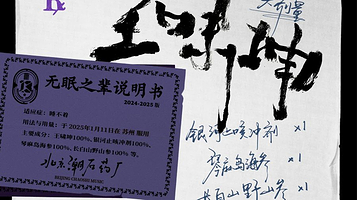 大剂量
无眠之辈说明书
2024-2025版
适应症：睡不着
用法与用量：于2025年1月11日在苏州服用
主要成分：100%、银河止咳冲剂100%、
琴麻岛海参100%、长白山野山参100% 等。
北京潮石药厂
银河止咳冲剂 x1
琴麻岛海参 x1
长白山野山参 x1